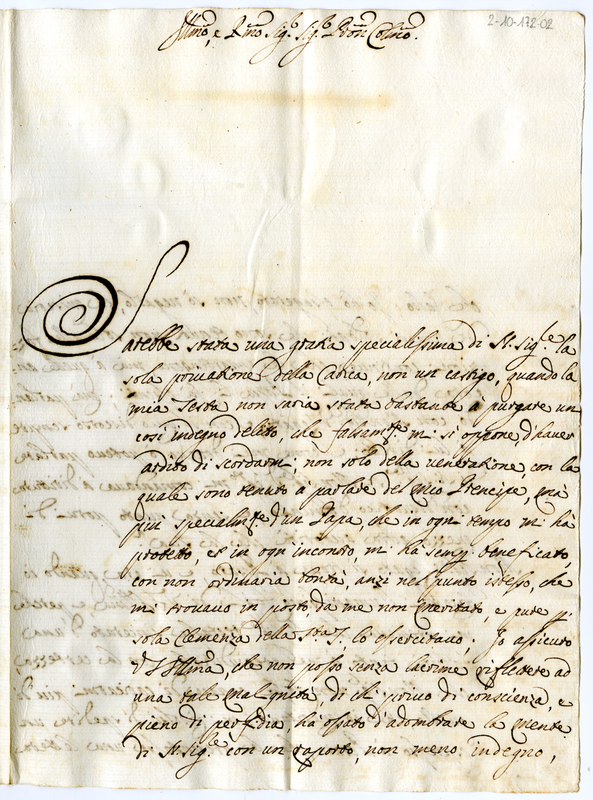 2-10-172-02
Illmo, e Rmo Sigr Sigr Pron Colmo.
Sarebbe stata una gratia specialissima di N. Sigre la
sola privatione della Carica, non un castigo, quando la
mia Testa non saria stata bastante à purgare un
così indegno delito, che falsamte mi si oppone, d'haver
ardito di scordarmi non solo della veneratione, con la
quale sono tenuto à parlare del mio Prencipe, mà
più specialmte d'un Papa, che in ogni tempo mi hà
protetto, et in ogni incontro, mi hà sempre beneficato,
con non ordinaria bontà, anzi nel punto istesso, che
mi trovavo in posto, da me non meritato, e pure p.
sola Clemenza della Sta S. lo essercitavo; Io assicuro
V S Illma, che non posso senza lacrime riflettere ad
una tale malignità, di chi privo di conscienza, e
pieno di perfidia, hà osato d'adombrare la mente
di N. Sigre con un raporto, non meno indegno,